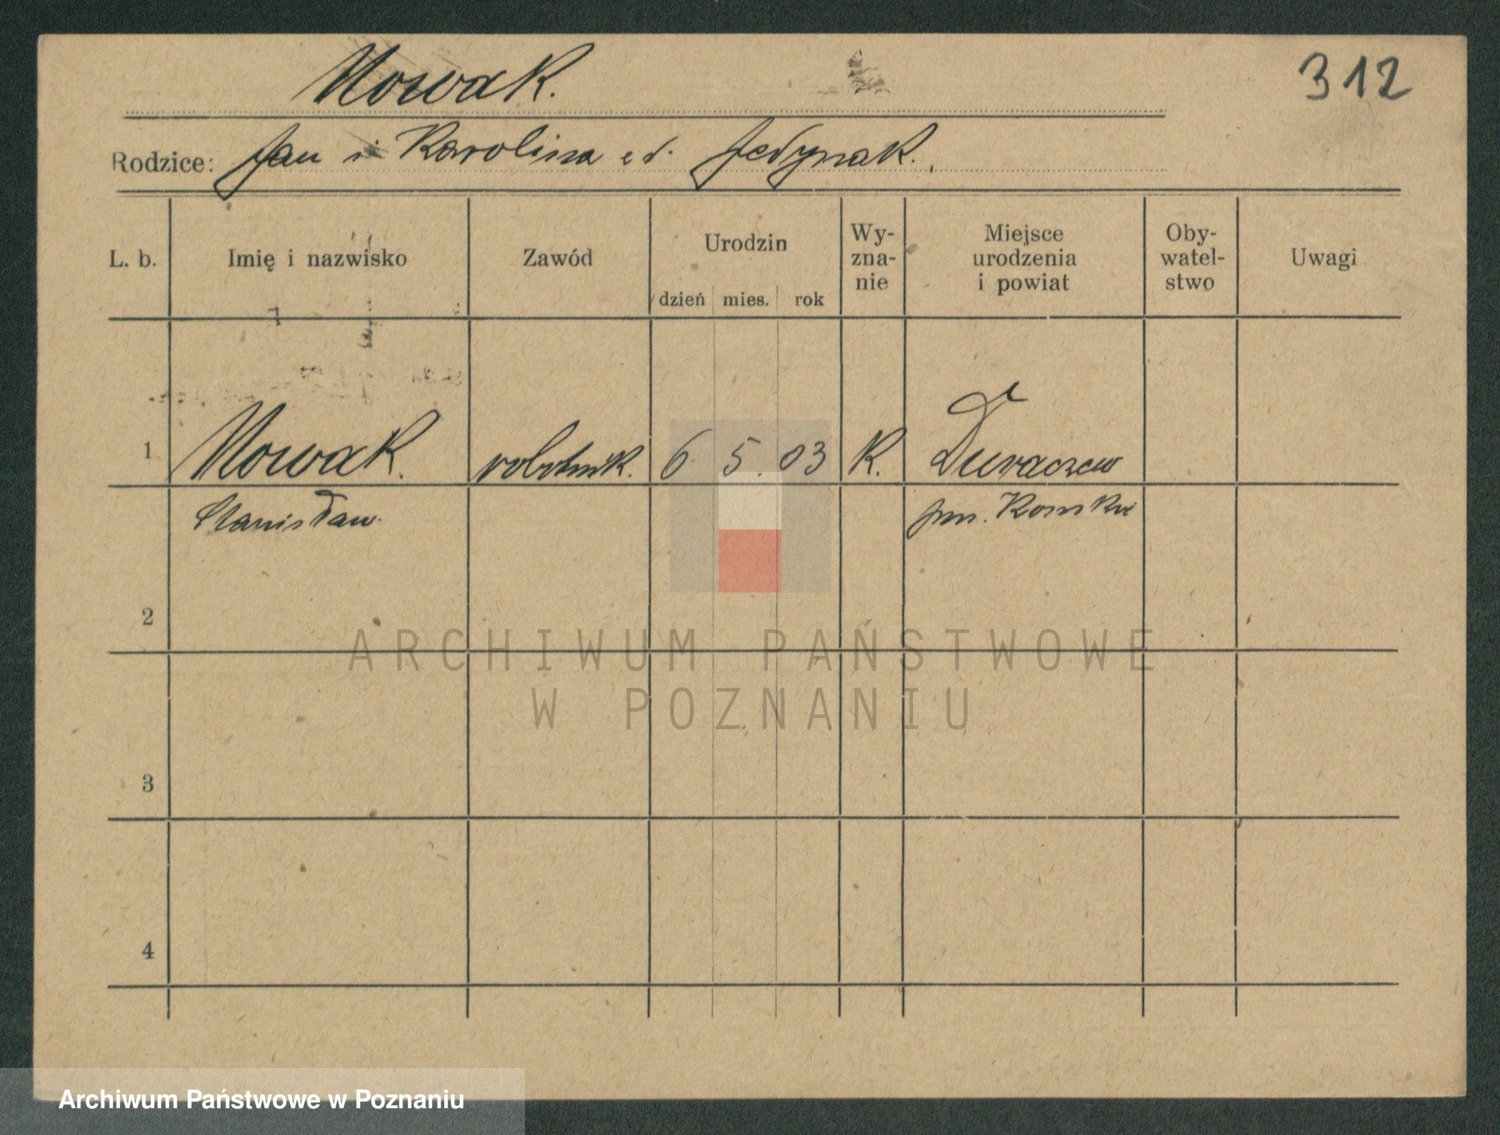 Nowak.
312
Rodzice: Jan i Karolina z d. Jedynak.
L. b.
Imię i nazwisko
Zawód
Urodzin
dzień mies. rok
Wy-
zna-
nie
Miejsce
urodzenia
i powiat
Oby-
watel-
stwo
Uwagi
1 Nowak. robotnik. 6 5. 03 K. Duraczew
Stanisław. pow.
2
ARCHIWUM PAŃSTWOWE
W POZNANIU
3
4
Archiwum Państwowe w Poznaniu